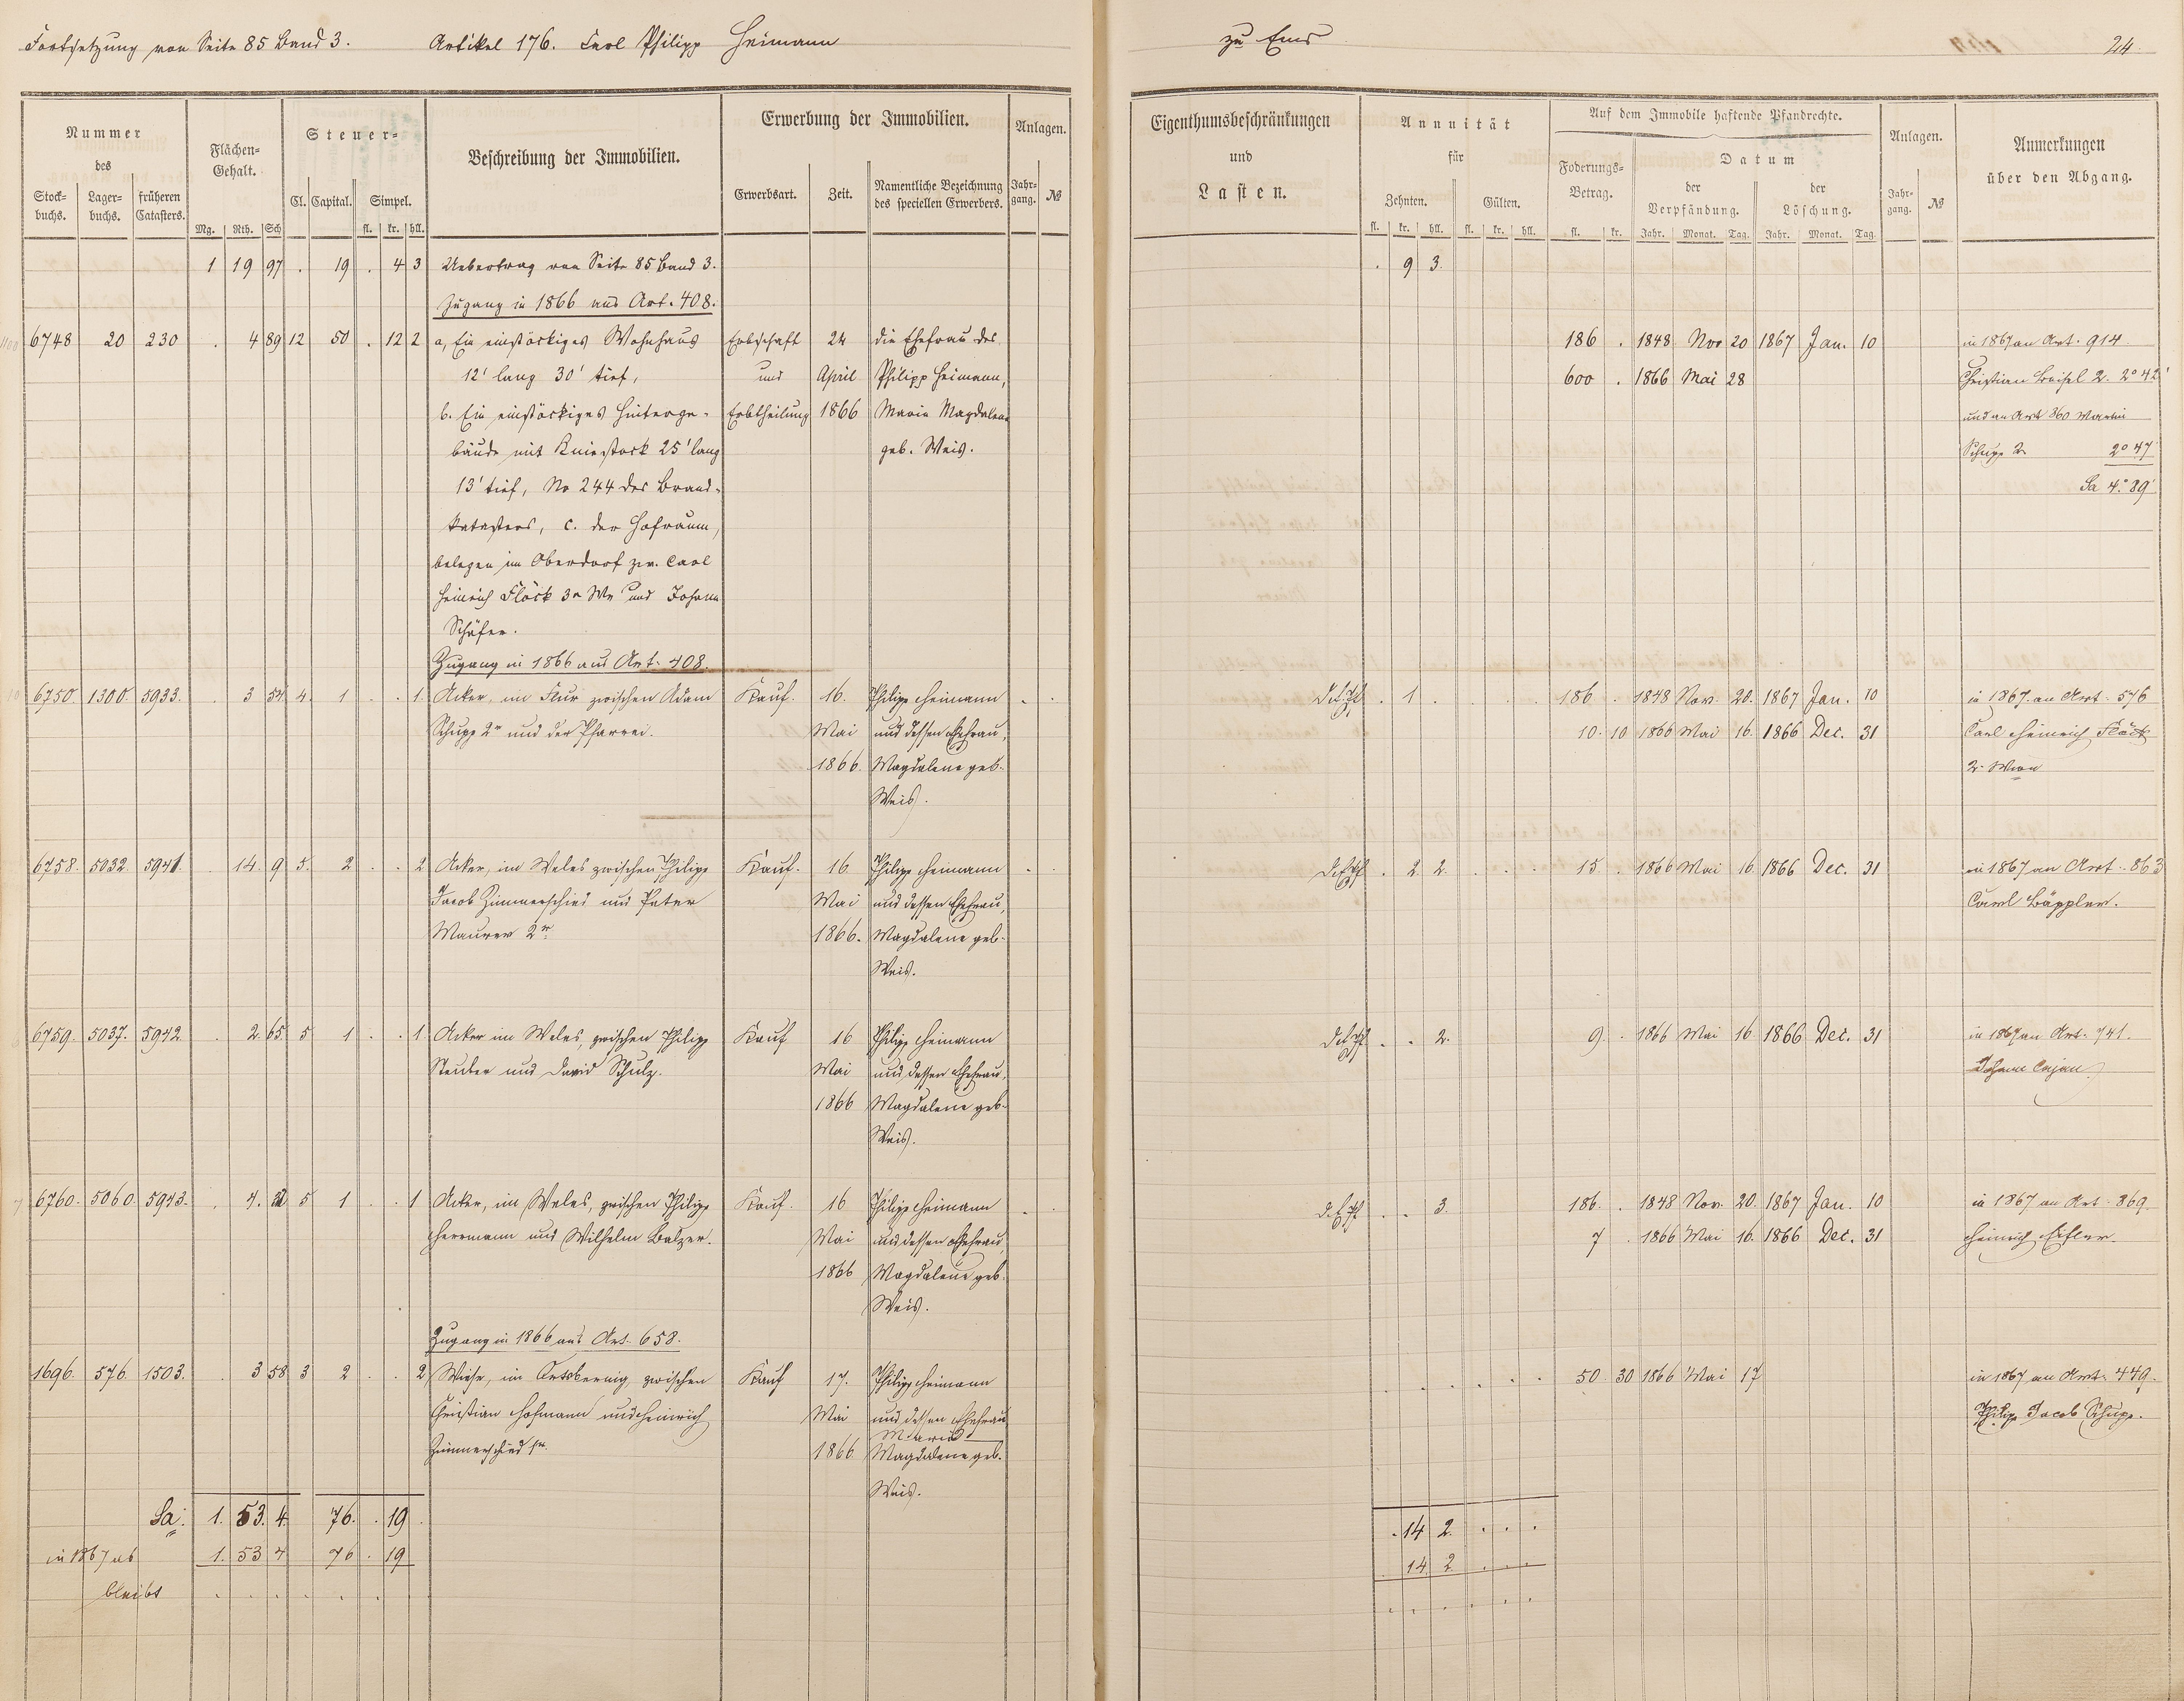 Fortsetzung von Seite 85 Band 3. Artikel 176. Carl Philipp Heimann zu Ems 24.
Nummer des
Stockbuchs. Lagerbuchs. früheren Catasters.
Flächen-Gehalt.
Mg. Rth. Sch
Steuer-
Cl. Capital. Simpel.
fl. kr. hll.
Beschreibung der Immobilien.
Erwerbung der Immobilien.
Erwerbsart. Zeit. Namentliche Bezeichnung des speciellen Erwerbers.
Anlagen.
Jahrgang. №
Eigenthumsbeschränkungen
und
Lasten.
Annuität
für
Zehnten. Gülten.
fl. kr. hll. fl. kr. hll.
Auf dem Immobile haftende Pfandrechte.
Foderungs-Betrag.
fl. kr.
Datum
der Verpfändung. der Löschung.
Jahr. Monat. Tag. Jahr. Monat. Tag.
Anlagen.
Jahrgang. №
Anmerkungen
über den Abgang.
1 19 97 . 19 . 4 3 Uebertrag von Seite 85 Band 3. . 9 3.
Zugang in 1866 aus Art. 408.
6748 20 230 . 4 89 12 50 . 12 2 a, Ein einstöckiges Wohnhaus Erbschaft 24 die Ehefrau des 186 . 1848 Nov 20 1867 Jan. 10 in 1867 an Art. 914
12' lang 30' tief, und April Philipp Heimann, 600 . 1866 Mai 28 Christian 2. 2° 42'
b. Ein einstöckiges Hinterge- Erbtheilung 1866 Maria Magdalena und an Art 360 Martin
bäude mit Kniestock 25' lang geb. Weis. Schupp 2r 2° 47
13' tief, No 244 des Brand- Sa 4° 89'
katasters, c. der Hofraum,
belegen im Oberdorf zw. Carl
Heinrich Flöck 3r We und Johann
Schäfer.
Zugang in 1866 aus Art. 408.
6750. 1300. 5933. . 3 54 4. 1 . . 1. Acker, im Flur zwischen Adam Kauf. 16. Philipp Heimann . 1 . 186. . 1848 Nov. 20. 1867 Jan. 10 in 1867 an Art. 576
Schupp 2r und der Pfarrei. Mai und dessen Ehefrau, 10. 10 1866 Mai 16. 1866 Dec. 31 Carl Heinrich Flöck
1866. Magdalene geb.
Weis.
6758. 5032. 5941. . 14. 9 5. 2 . . 2 Acker, im Weles zwischen Philipp Kauf. 16. Philipp Heimann . 2. 2. 15. . 1866 Mai 16. 1866 Dec. 31 in 1867 an Art. 863
Jacob Zimmerschied und Peter Mai und dessen Ehefrau, Carl Bäppler.
Maurer 2r 1866. Magdalene geb.
Weis.
6759. 5037. 5942. . 2. 65. 5 1 . . 1. Acker im Weles, zwischen Philipp Kauf 16 Philipp Heimann . . 2. 9. . 1866 Mai 16 1866 Dec. 31 in 1867 an Art. 741.
Steuber und David Schulz. Mai und dessen Ehefrau, Johann Cajan
1866 Magdalene geb.
Weis.
6760. 5060. 5943. . 4. 5 1 . . 1 Acker, im Weles, zwischen Philipp Kauf. 16 Philipp Heimann . . 3. 186. . 1848 Nov. 20. 1867 Jan. 10 in 1867 an Art. 869.
Herrmann und Wilhelm Balzer. Mai und dessen Ehefrau, 7 . 1866 Mai 16. 1866 Dec. 31 Heinrich Eisler.
1866 Magdalene geb.
Weis.
Zugang in 1866 aus Art. 658.
1696. 576. 1503. . 3 58 3 2 . . 2 Wiese, im zwischen Kauf 17. Philipp Heimann 50. 30 1866 Mai 17 in 1867 an Art. 449.
Christian Hofmann und Heinrich Mai und dessen Ehefrau Philipp Jacob Schupp.
Zimmerschied 1r. Maria
1866. Magdalene geb.
Weis.
Sa. 1. 53. 4. 76. . 19 . 14 2. . . .
in 1867 ab 1. 53 4 76 . 19 . 14. 2. . . .
bleibt . . . . . . . . . . . .